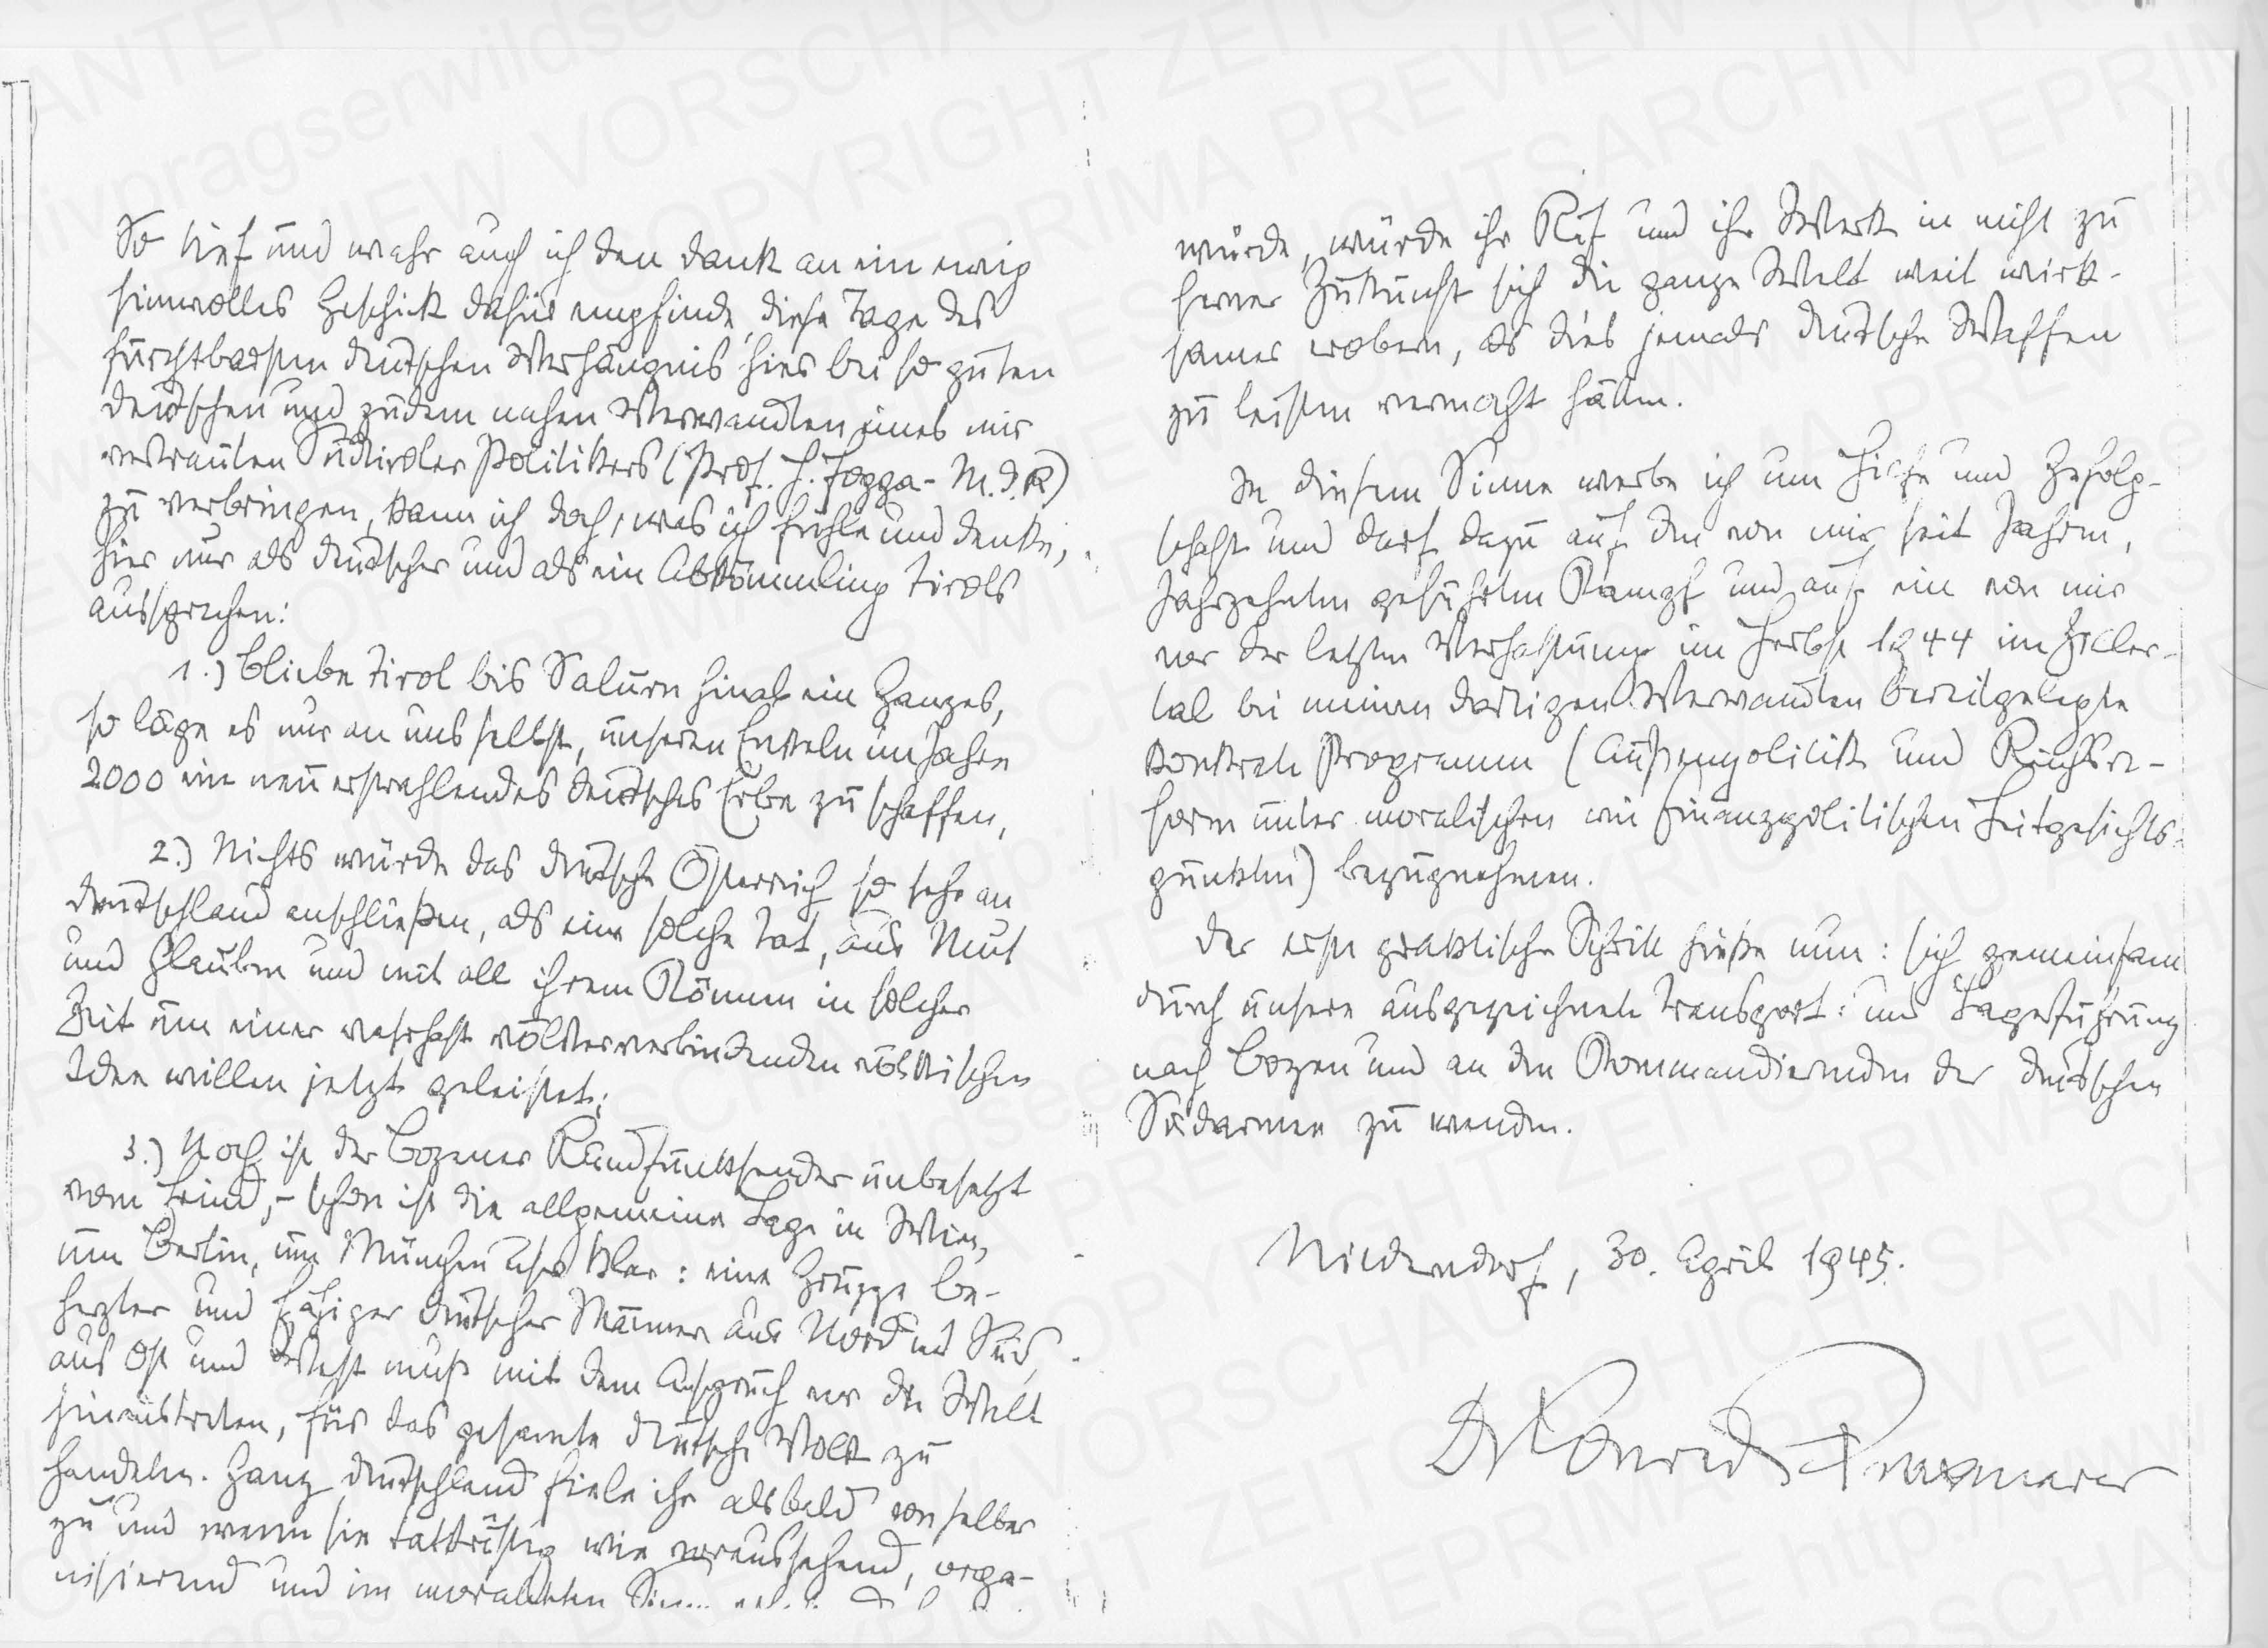 So tief und wahr auch ich den Dank an ein ewig
sinnvolles Geschick dafür empfinde, diese Tage des
furchtbarsten deutschen Verhängnis hier bei so guten
Deutschen und zudem nahen Verwandten eines mir
vertrauten Südtiroler Politikers (Prof. H. Fogga - M.d.R)
zu verbringen, kann ich doch, was ich fühle und denke,
hier nur als Deutscher und als ein Abkömmling Tirols
aussprechen:
1.) Bliebe Tirol bis Salurn hinab ein Ganzes,
so läge es nur an uns selbst, unseren Enkeln im Jahre
2000 ein neu erstrahlendes deutsches Erbe zu schaffen,
2.) Nichts würde das deutsche Österreich so sehr an
Deutschland anschließen, als eine solche Tat, aus Mut
und Glauben und mit all ihrem Können in solcher
Zeit um einer wahrhaft völkerverbindenden völkischen
Idee willen jetzt geleistet;
3.) Noch ist der Bozener Rundfunksender unbesetzt
vom Feind, - schon ist die allgemeine Lage in Wien,
um Berlin, um München sehr klar: eine Gruppe be-
herzter und fähiger deutscher Männer aus Nord und Süd,
aus Ost und West muß mit dem Anspruch vor die Welt
hinaustreten, für das gesamte deutsche Volk zu
handeln. Ganz Deutschland fiele ihr alsbald von selber
zu und wenn sie tatkräftig wie voraussehend, orga-
nisierend und im moralischen Sinne
würde, würde ihr Ruf und ihr Werk in nicht zu
ferner Zukunft sich die ganze Welt weit wirk-
samer erobern, als dies jemals deutsche Waffen
zu leisten vermocht hätten.
In diesem Sinne werbe ich um Hilfe und Gefolg-
schaft und darf dazu auf den von mir seit Jahren,
Jahrzehnten geführten Kampf und auf ein von mir
vor der letzten Verhaftung im Herbst 1944 im Ziller-
tal bei meinen dortigen Verwandten bereitgelegte
konkrete Programm (Außenpolitik und Reichsre-
form unter moralischen wie finanzpolitischen Leitgesichts-
punkten) bezugnehmen.
Der erste praktische Schritt hieße nun: sich gemeinsam
durch unsere ausgezeichnete Transport- und Lagerführung
nach Bozen und an den Kommandierenden der deutschen
Südarmee zu wenden.
Niederndorf, 30. April 1945.
Dr Konrad Praxmarer